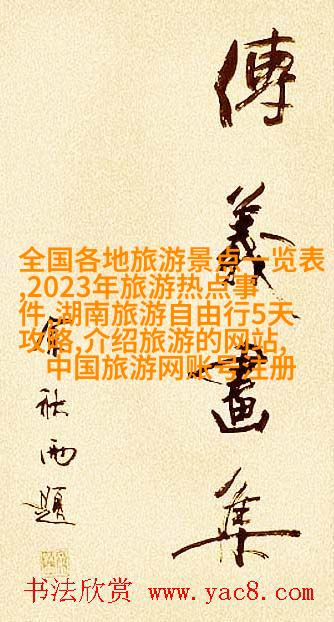 傅義畫集
題
全国各地旅游景点一览表
,2023年旅游热点事
件,湖南旅游自由行5天
攻略,介绍旅游的网站,
中国旅游网账号注册
书法欣赏 www.yac8.com